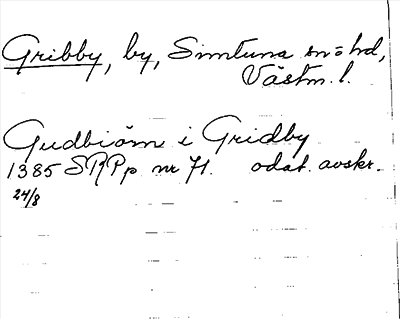 Gribby, by, Simtuna sn o hd,
Västm. l.
Gudbiörn i Gridby
1385 SRPp nr 71. odat. avskr.
24/8